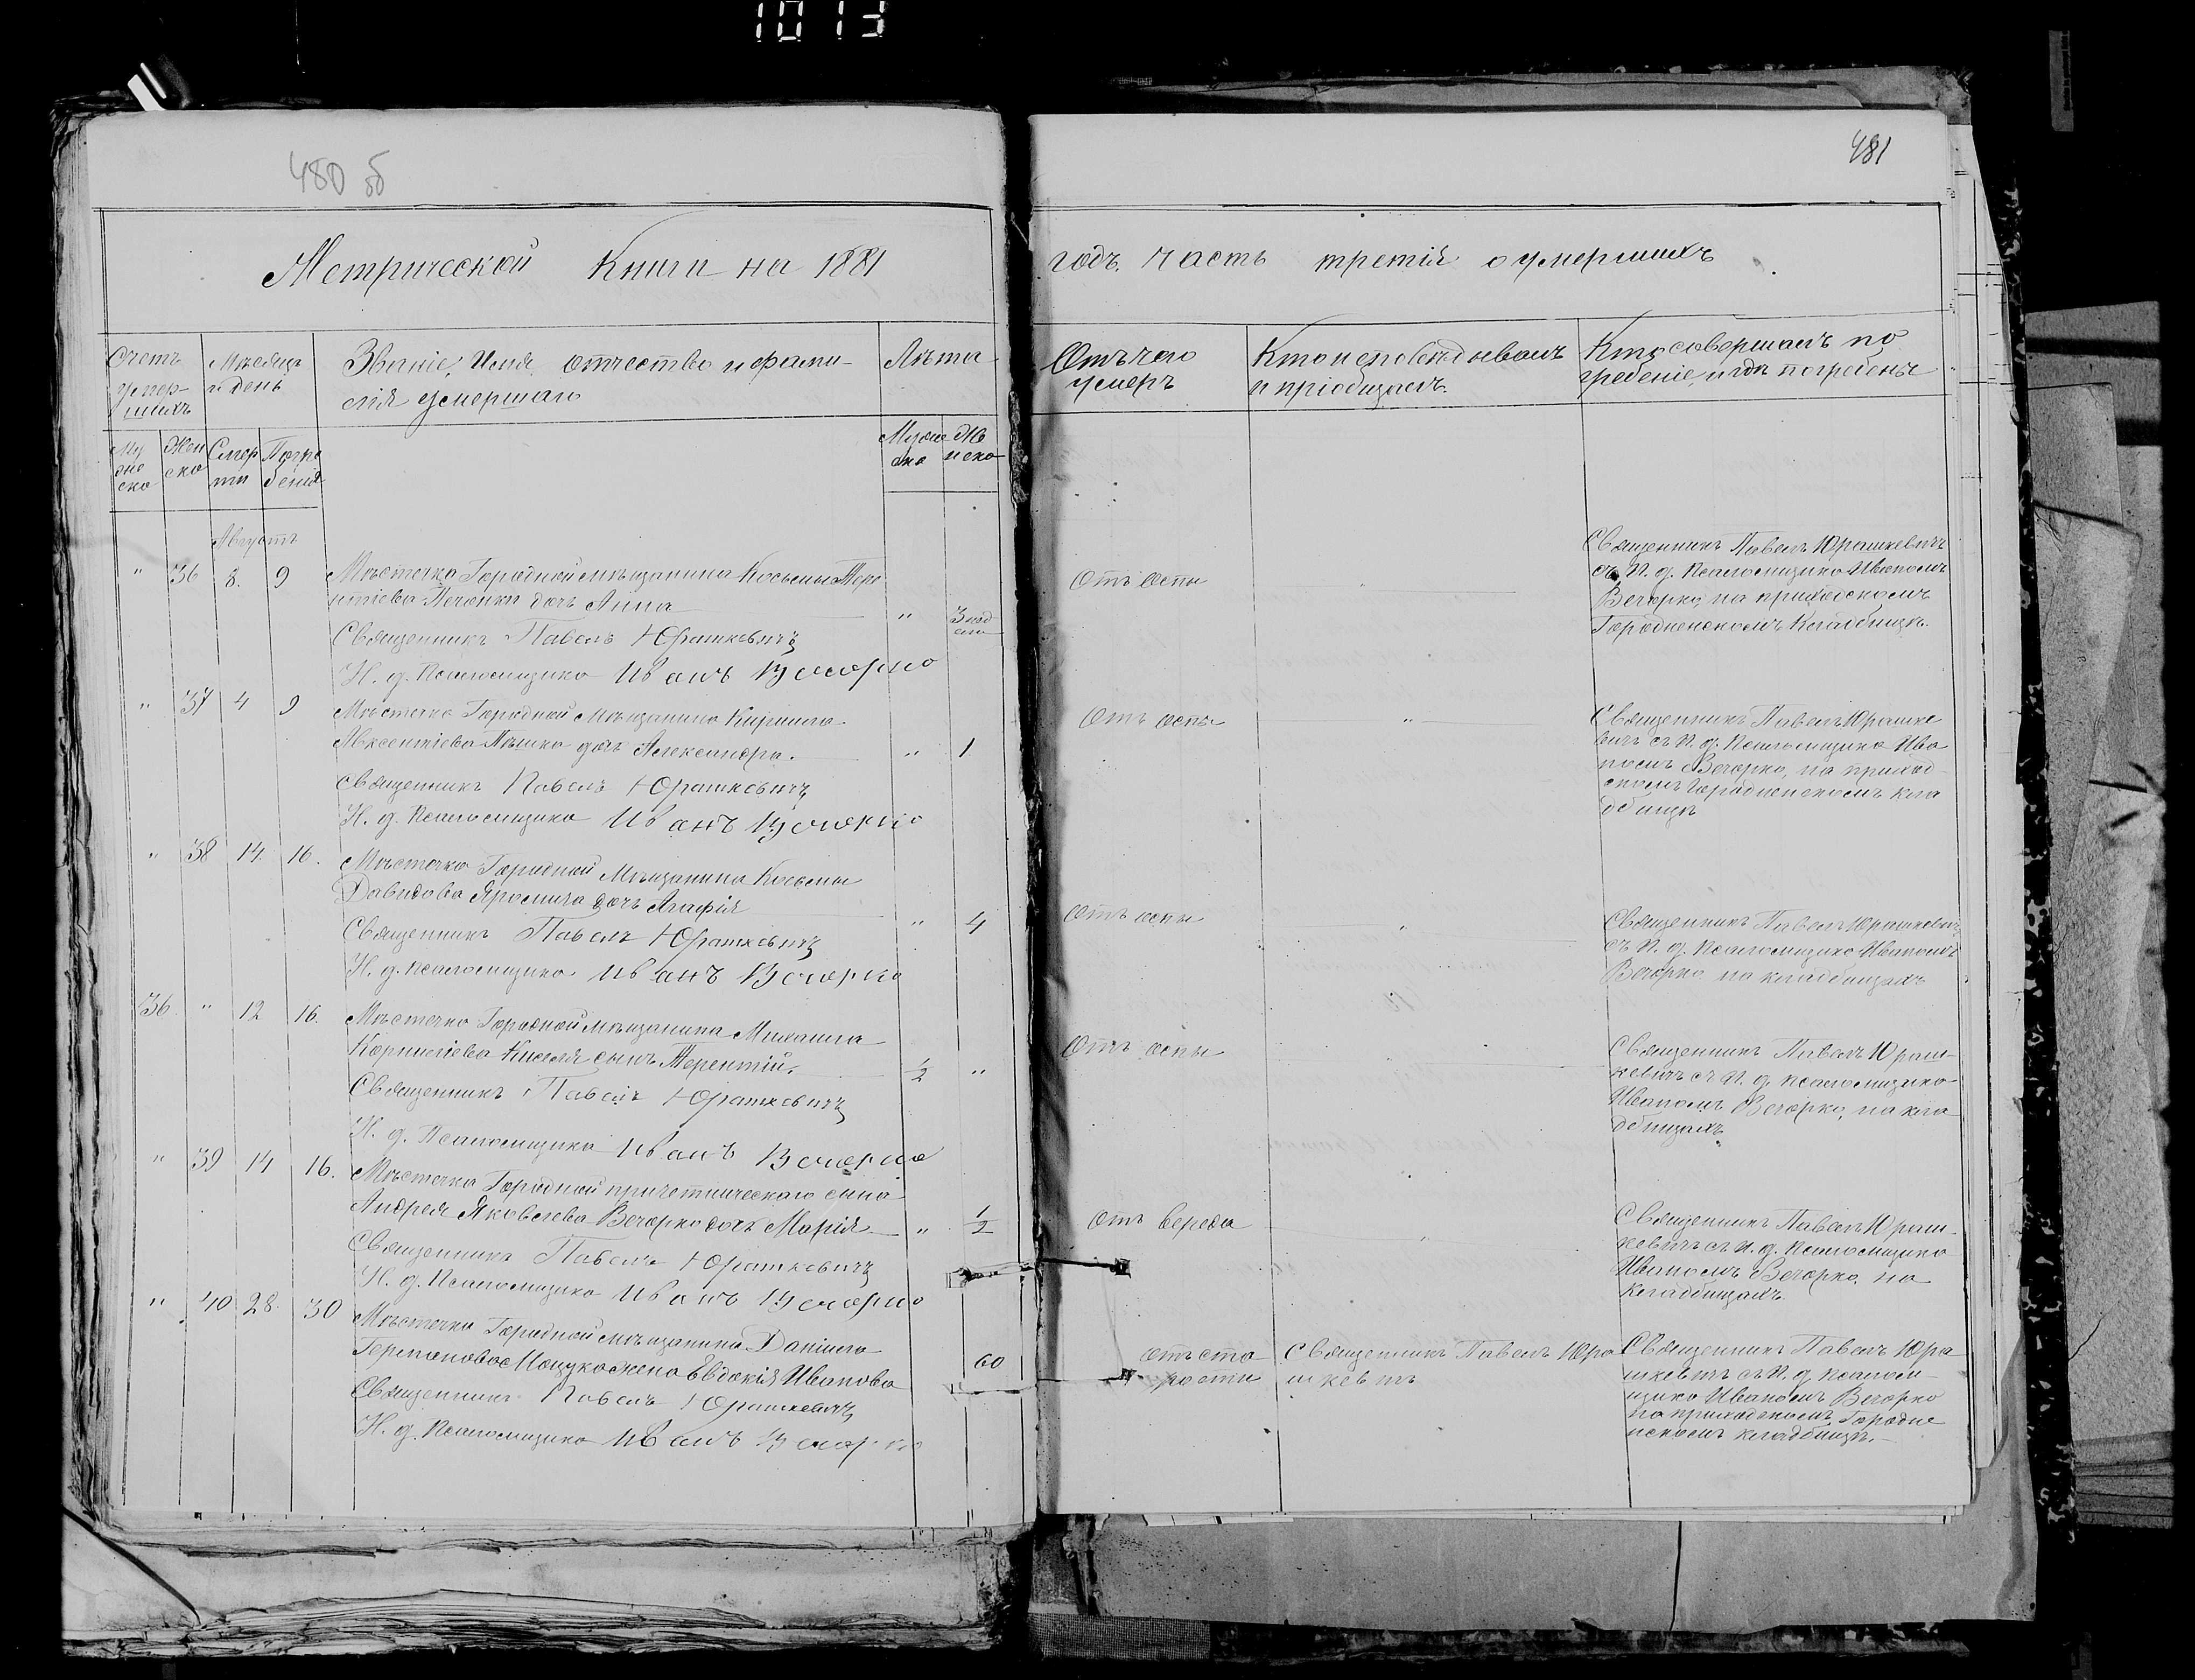 1013
480 об
481
Метрической Книги на 1881
годъ. Часть третія о умершихъ
Счетъ умер-шихъ
Мѣсяцъ и день
Званіе, Имя, отчество и фами-
лія умершаго
Лѣта
Отъ чего
умеръ
Кто исповѣдывалъ
и пріобщалъ.
Кто совершалъ по
гребеніе, и гдѣ погребены
Му
жс
ско
Жен
ско
Смер
ти
Погре
бенія
Муже
ско
Же
нско
Августъ
" 36 8. 9 Мѣстечка Городной мѣщанина Косьмы Тере
нтіева Печонки дочь Анна
" 3 нод
Священникъ Павелъ Юрашкевичъ
И. д. Псаломщика Иванъ Вечорко
Отъ оспы
Священникъ Павелъ Юрашкевичъ
съ И. д. Псаломщика Иваномъ
Вечорко, на приходскомъ
Городненскомъ Кладбищѣ.
" 37 4 9 Мѣстечка Городной Мѣщанина Кирила
Авксентіева Пѣшко дочь Александра. " 1
Священникъ Павелъ Юрашкевичъ
И. д. Псаломщика Иванъ Вечорко
Отъ оспы "
Священникъ Павелъ Юрашке
вичъ съ И. д. Псаломщика Ива
номъ Вечорко, на приход
скомъ Городненскомъ кла
дбищѣ
" 38 14. 16. Мѣстечка Городной Мѣщанина Косьмы
Давидова Яромича дочь Агафія
" 4
Священникъ Павелъ Юрашкевичъ
И. д. Псаломщика Иванъ Вечорко
Отъ оспы "
Священникъ Павелъ Юрашкевичъ
съ И. д. Псаломщика Иваномъ
Вечорко на кладбищахъ
36. " 12 16. Мѣстечка Городной мѣщанина Михаила
Корнилієва Киселя сынъ Терентій. 1/2 "
Священникъ Павелъ Юрашкевичъ
И. д. Псаломщика Иванъ Вечорко
Отъ оспы
Священникъ Павелъ Юраш-
кевичъ съ И. д. псаломщика
Иваномъ Вечорко, на кла
дбищахъ
" 39 14 16. Мѣстечка Городной причетническаго сына
Андрея Яковлева Вечорко дочь Марія " 1/2
Священникъ Павелъ Юрашкевичъ
И. д. Псаломщика Иванъ Вечорко
Отъ вереда "
Священникъ Павелъ Юраш-
кевичъ съ И. д. Псаломщика
Иваномъ Вечорко, на
Кладбищахъ
" 40 28. 30 Мѣстечка Городной мѣщанина Даніила
Германова жена Евдокія Иванова 60
Священникъ Павелъ Юрашкевичъ
И. д. Псаломщика Иванъ Вечорко
отъ ста
рости
Священникъ Павелъ Юра
шкевичъ
Священникъ Павелъ Юра
шкевичъ съ И. д. псалом-
щика Иваномъ Вечорко
на приходскомъ Городне
нскомъ кладбищѣ.